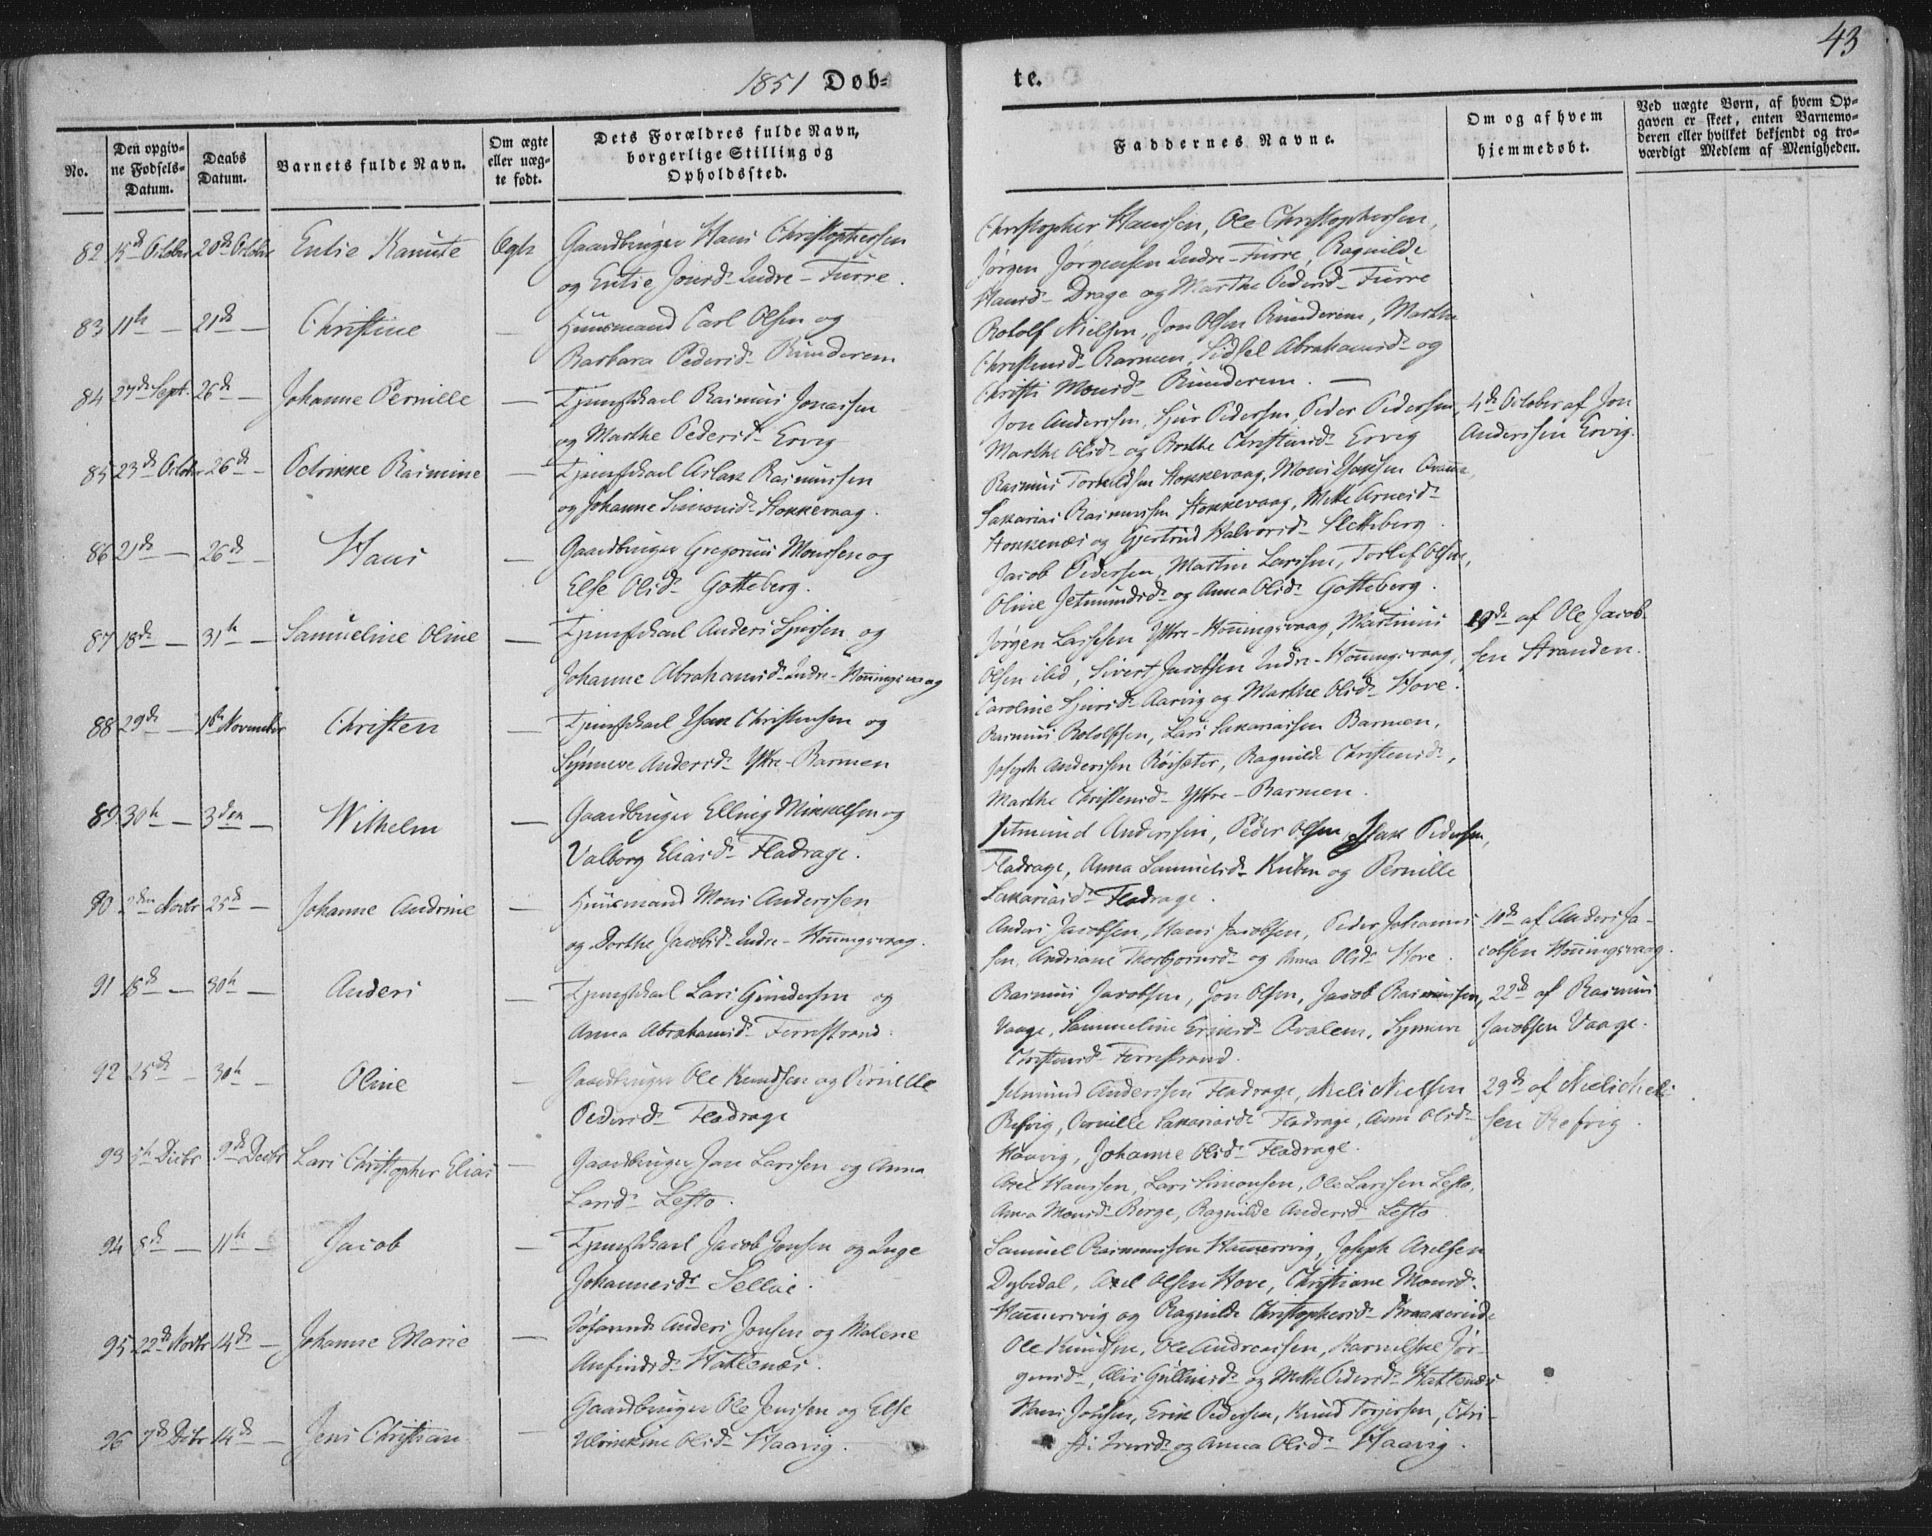 43
1851 Døb=
te.
No.
Den opgiv-
ne Fødsels-
Datum.
Daabs
Datum.
Barnets fulde Navn.
Om ægte
eller uæg-
te født.
Dets Forældres fulde Navn,
borgerlige Stilling og
Opholdssted.
Faddernes Navne.
Om og af hvem
hjemmedøbt.
Ved uægte Børn, af hvem Op-
gaven er skeet, enten Barnemo-
deren eller hvilket bekjendt og tro-
værdigt Medlem af Menigheden.
82 15de October 20de October Entie Kanute Ægte Gaardbruger Hans Christophersen
og Entie Jonsd. Indre-Furre.
Christopher Hanssen, Ole Christophersen,
Jørgen Jørgensen Indre-Furre, Ragnilde
Hansd. Drage og Marthe Pedersd. Furre
83 11te — 21de — Christine — Huusmand Carl Olsen og
Barbara Pedersd. Runderem
Rololf Nielsen, Jon Olsen Runderem, Marthe
Christensd. Barmen, Sidsel Abrahamsd. og
Christi Monsd. Runderem. —
84 27de Sept. 26de — Johanne Pernille — Tjenestkarl Rasmus Jonassen
og Marthe Pedersd. Ervig
Jon Anderssen, Sjur Pedersen, Peder Pedersen,
Marthe Olsd. og Brithe Christensd. Ervig
4de October af Jon
Anderssen Ervig.
85 23de October 26de — Petrikke Rasmine — Tjenestkarl Aslak Rasmussen
og Johanne Simonsd. Stokkevaag.
Rasmus Torkildsen Stokkevaag, Mons
Sakarias Rasmussen Stokkevaag, Mette Arnesd.
Stokkenæs og Gjertrud Halvorsd. Sletteberg.
86 21de — 26de — Hans — Gaardbruger Gregorius Monssen og
Else Olsd. Gotteberg.
Jacob Pedersen, Martin Larssen, Torlef Olsen,
Oline Jetmundsd. og Anna Olsd. Gotteberg.
87 18de — 31te — Samueline Oline — Tjenestkarl Anders Sjursen og
Johanne Abrahamsd. Indre-Honningsvaag
Jørgen Lassesen Ytre-Honningsvaag, Martinus
Olsen ibid, Sivert Jacobsen Indre-Honningsvaag,
Caroline Sjursd. Aarvig og Marthe Olsd. Hove.
19de af Ole Jacob-
sen Stranden.
88 29de — 1ste November Christen — Tjenestkarl Isak Christensen og
Synneve Andersd. Ytre-Barmen
Rasmus Rololfsen, Lars Sakariassen Barmen,
Joseph Anderssen Røisæter, Ragnilde Christensd.,
Marthe Christensd. Ytre-Barmen.
89 30te — 3den — Wilhelm — Gaardbruger Elling Mikkelsen og
Valborg Eliasd. Fladrage.
Jetmund Anderssen, Peder Olsen, Isak Pedersen,
Fladrage, Anna Samuelsd. Kuben og Pernille
Sakariasd. Fladrage.
90 2den Novbr 25de — Johanne Andrine — Huusmand Mons Anderssen
og Dorthe Jacobsd. Indre-Honningsvaag.
Anders Jacobsen, Hans Jacobsen, Peder Johannes-
sen, Andriane Thorbjørnsd. og Anna Olsd. Hove.
10de af Anders Ja-
cobsen Honningsvaag.
91 18de — 30te — Anders — Tjenestkarl Lars Gundersen og
Anna Abrahamsd. Ferrestrand.
Rasmus Jacobsen, Jon Olsen, Jacob Rasmussen,
Vaage, Sammeline Eriksd. Ovalem, Synneve
Christensd. Ferrestrand.
22de af Rasmus
Jacobsen Vaage.
92 25de — 30te — Oline — Gaardbruger Ole Knudsen og Pernille
Pedersd. Fladrage
Jetmund Anderssen Fladrage, Niels Nielsen
Refvig, Pernille Sakariasd. Fladrage, Anne Olsd.
Haavig, Johanne Olsd. Fladrage.
29de af Niels Niel-
sen Refvig.
93 5te Decbr 9de Decbr Lars Christopher Elias — Gaardbruger Jon Larssen og Anna
Larsd. Lesto.
Axel Hanssen, Lars Simonsen, Ole Larssen Lesto,
Anna Monsd. Berge, Ragnilde Andersd. Lesto
94 8de — 11te — Jacob — Tjenestkarl Jacob Jonsen og Inge
Johannesd. Selliæ.
Samuel Rasmussen Hammersvig, Joseph Axelsen
Dybedal, Axel Olsen Hove, Christiane Monsd.
Hammersvig og Ragnilde Christophersd.
95 22de Novbr 14de — Johanne Marie — Søfarende Anders Jonsen og Malene
Anfindsd. Hatlenæs.
Ole Knudsen, Ole Andreassen, Karnelske Jør-
gensd., Alis Gulliksd. og Mette Pedersd. Hatlenæs
96 7de Decbr 14de — Jens Christian — Gaardbruger Ole Jenssen og Else
Ulrikkine Olsd. Haavig.
Hans Jonsen, Erik Pedersen, Knud Torjersen, Chri-
sti Iversd. og Anna Olsd. Haavig.